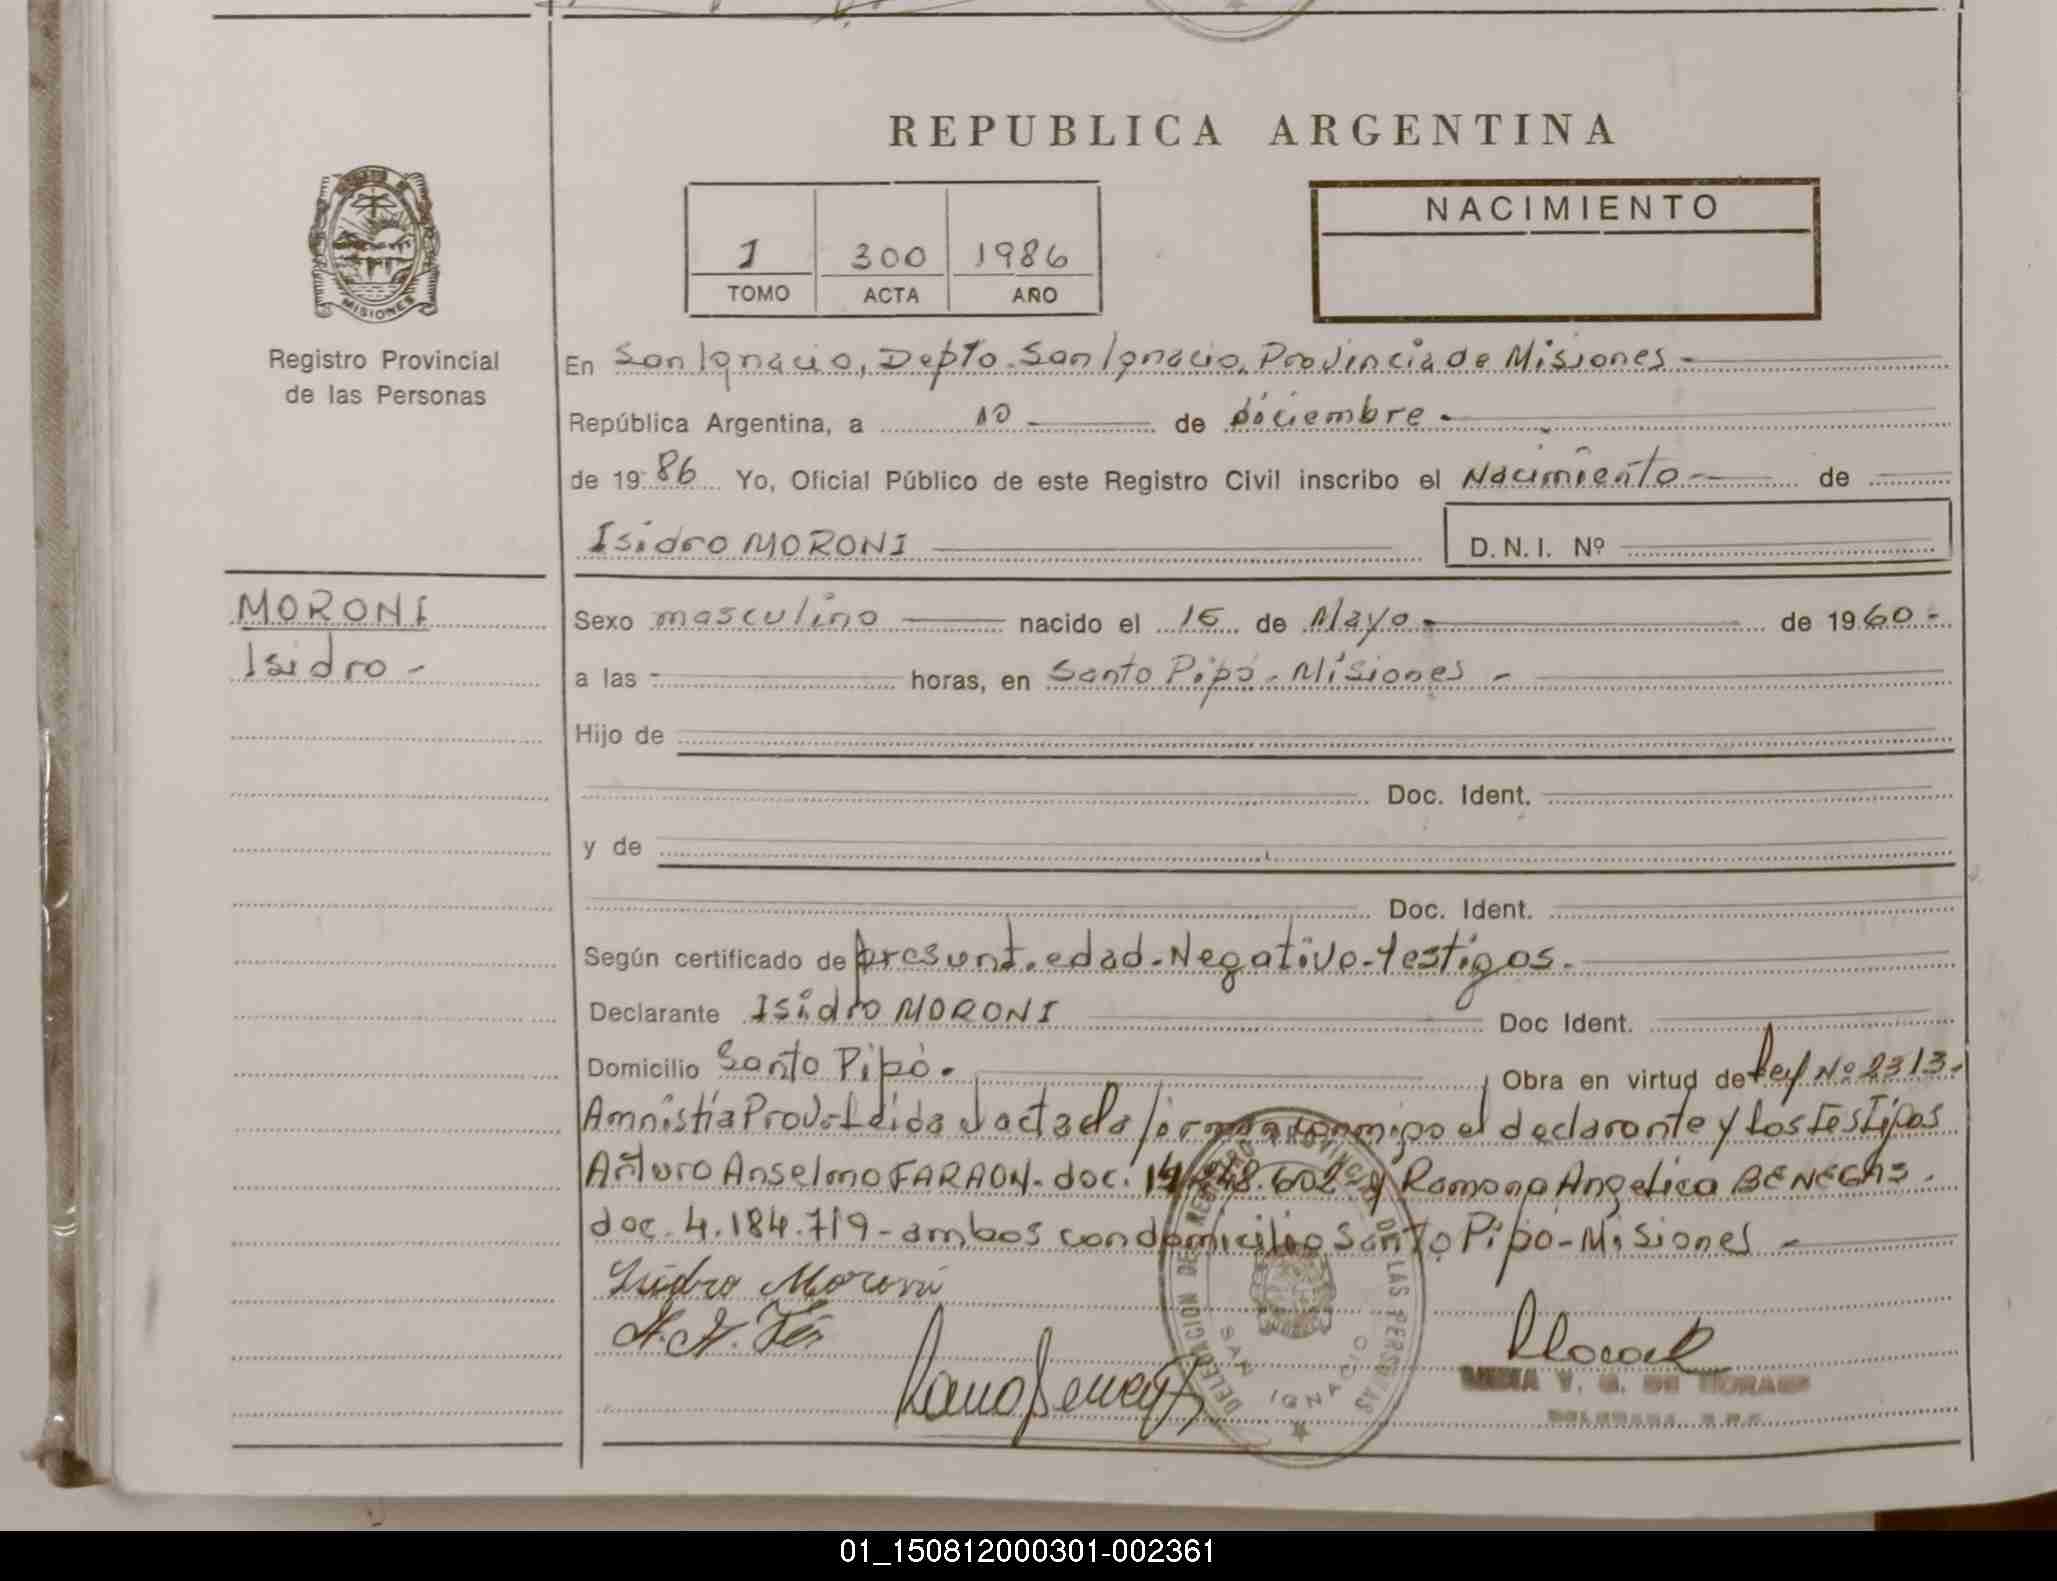 REPUBLICA ARGENTINA
NACIMIENTO
1 300 1986
TOMO ACTA AÑO
MISIONES
Registro Provincial
de las Personas
En San Ignacio, Depto. San Ignacio, Provincia de Misiones -
República Argentina, a 10 de diciembre -
de 1986 Yo, Oficial Público de este Registro Civil inscribo el Nacimiento - de
Isidro MORONI
D.N.I. Nº
MORONI
Isidro -
Sexo masculino nacido el 15 de Mayo - de 1960 -
a las horas, en Santo Pipó - Misiones -
Hijo de
Doc. Ident.
y de
Doc. Ident.
Según certificado de presunt. edad - Negativo - testigos.
Declarante Isidro MORONI Doc Ident.
Domicilio Santo Pipó. Obra en virtud de Ley Nº 2313 -
Amnistía Prov. Leida el acta la firman conmigo el declarante y los testigos
Arturo Anselmo FARAON - doc. 14.248.602 y Ramona Angelica BENEGAS.
doc. 4.184.719 - ambos con domicilio Santo Pipó - Misiones -
Isidro Moroni
DELEGACION DEL REGISTRO PROVINCIAL DE LAS PERSONAS
SAN IGNACIO
V. G. DE MORALES
01_150812000301-002361